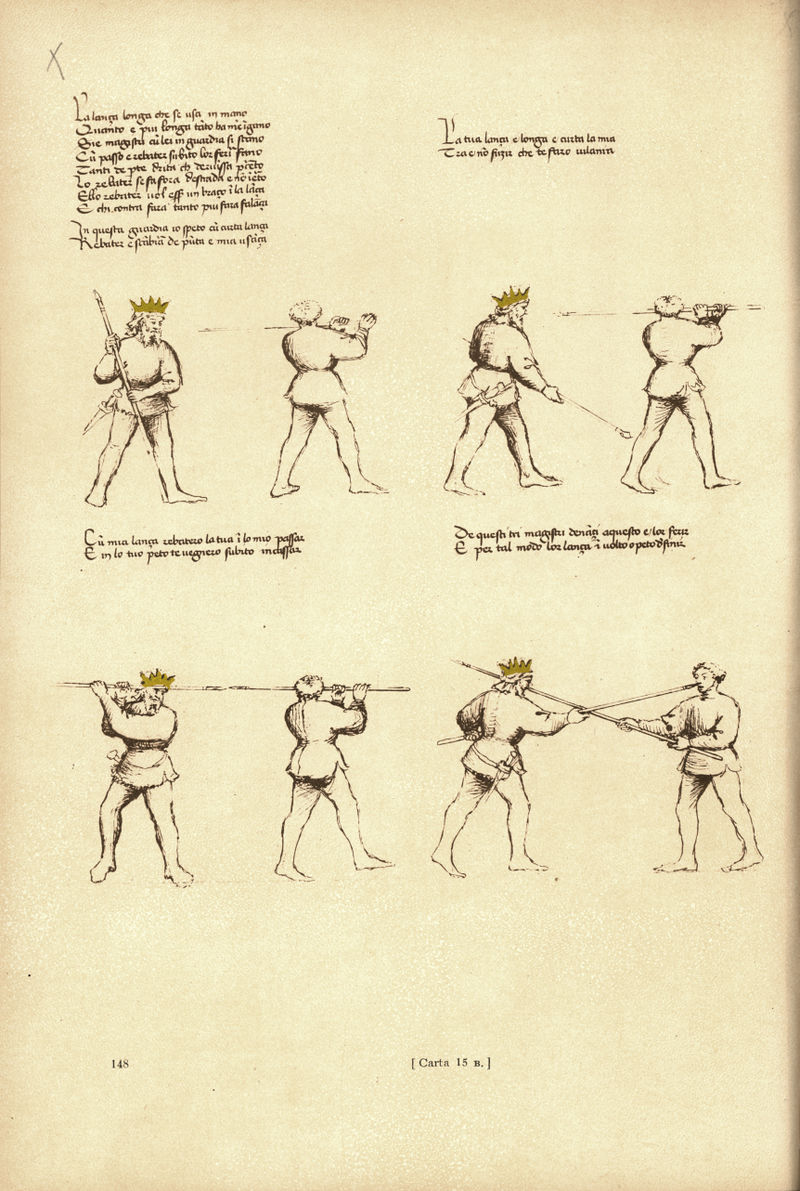 La lança longa che se usa in mano
Quanto e piu longa tãto ha me īgano
Sie magistri cũ lei in guardia si stano
Cũ passo e rebater subito lor ferir fano
Tanti de pte drita
Lo rebater se fa fora de strada e nõ
Ello rebater vol esser un braço ī la lãça
E chi contra fara tanto piu fara falãça
In questa guardia io speto cũ curta lança
Rebater e scãbiar de pũta e mia usãça
La tua lança e longa e curta la mia
Tra e nõ fuzir che te faro vilania
Cũ mia lança rebatero la tua ī lo mio passar
E in lo tuo peto te vegniro subito incassar
De questi tri magistri denãçi aquesto e lor ferir
E per tal modo lor lança ī volto o peto finir
148
[ Carta 15 B. ]